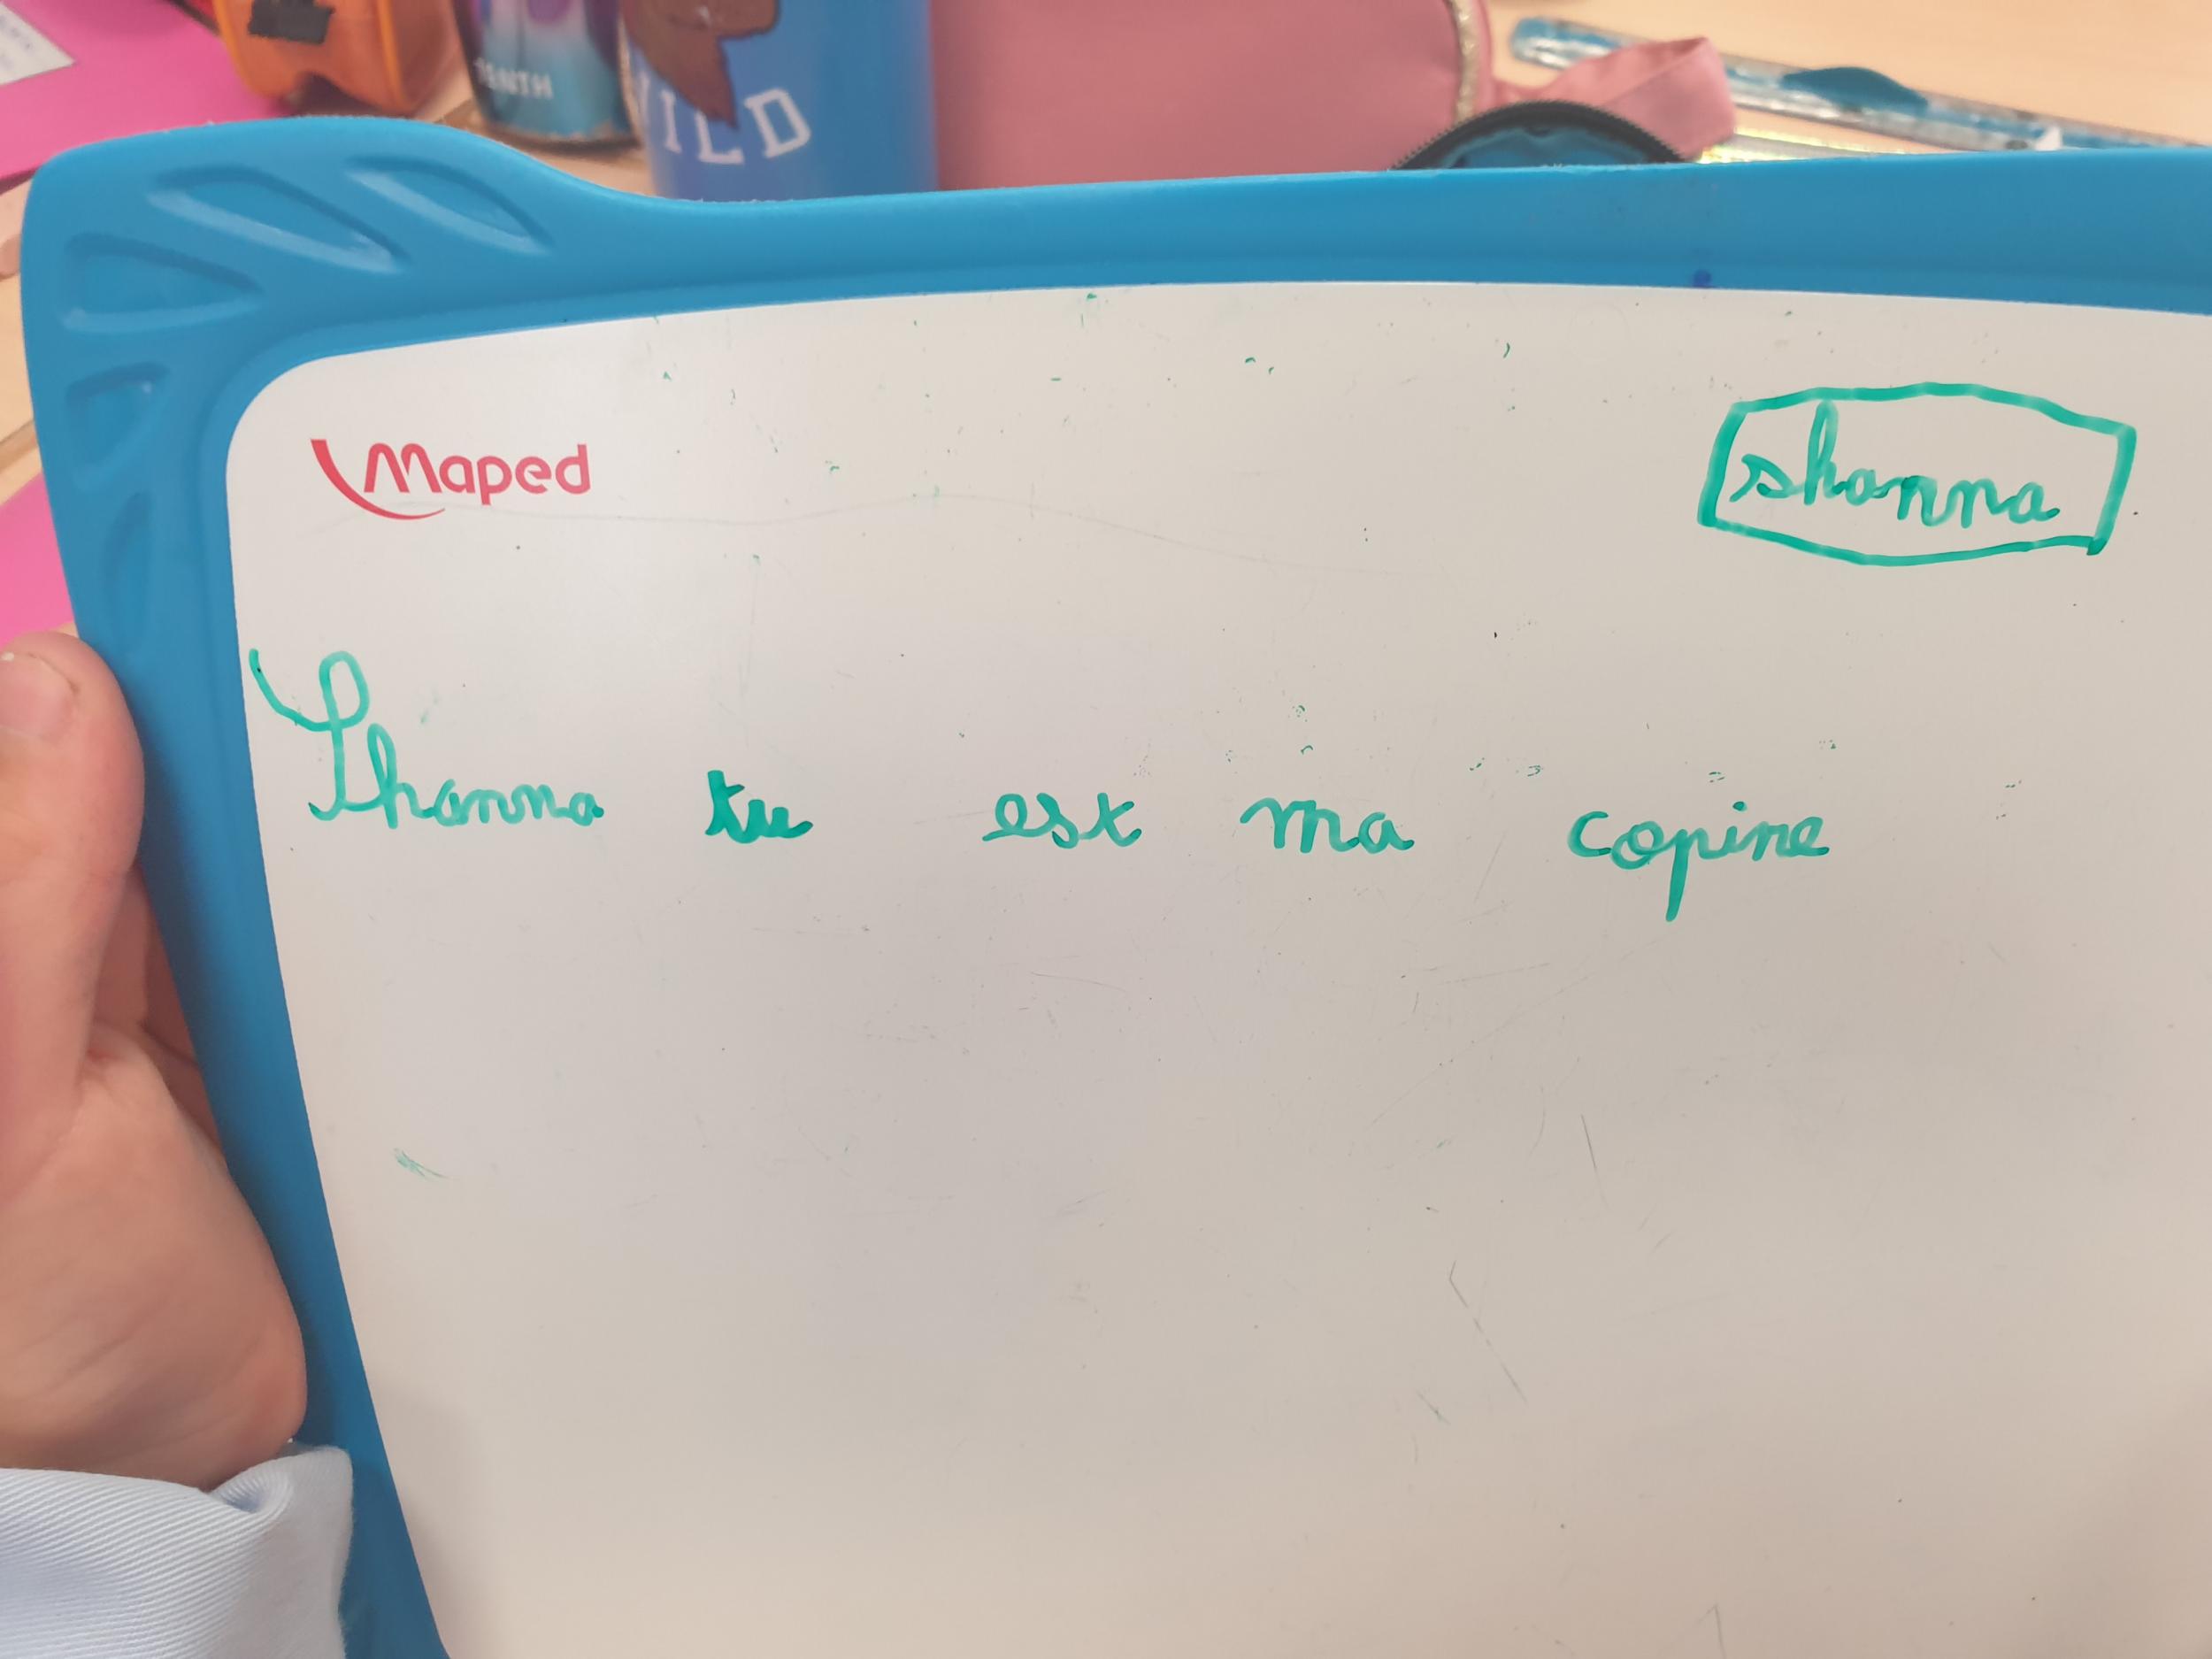 WILD
Maped
shanna
Shanna tu est ma copine